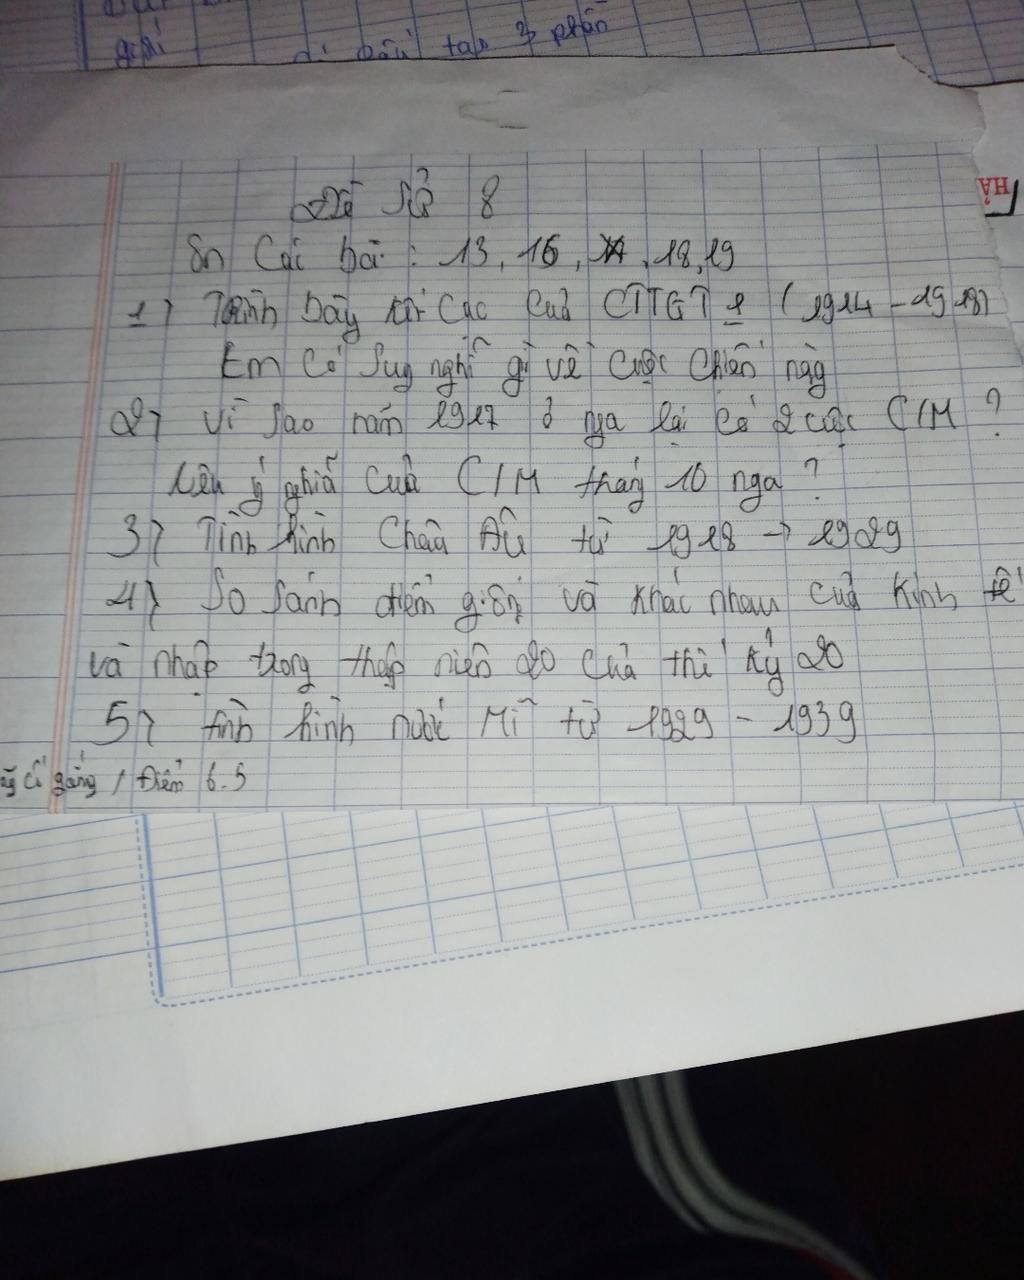 giải tập 3 phần
HẢ
Đề Sử 8
Ôn Các bài : 13, 15, 17, 18, 19
1) Trình bày kết cục của CTTGT 1 (1914 - 1918)
Em có suy nghĩ gì về cuộc chiến này
2) Vì sao năm 1917 ở nga lại có 2 cuộc C/M ?
Nêu ý nghĩa của C/M tháng 10 nga ?
3) Tình hình Châu Âu từ 1918 → 1929
4) So sánh điểm giống và khác nhau của kinh tế
và nhập trong thập niên 20 của thế kỷ 20
5) tình hình nước Mĩ từ 1929 - 1939
cố gắng / Điểm 6.5